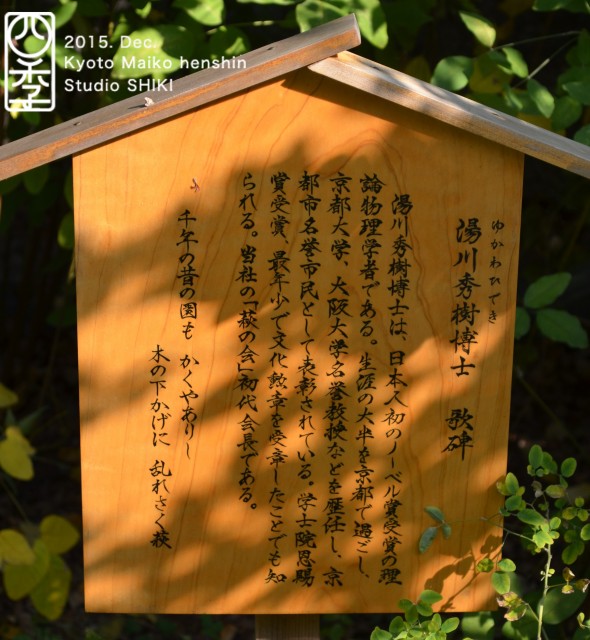 四季
2015. Dec.
Kyoto Maiko henshin
Studio SHIKI
ゆかわひでき
湯川秀樹博士 歌碑
湯川秀樹博士は、日本人初のノーベル賞受賞の理
論物理学者である。生涯の大半を京都で過ごし、
京都大学、大阪大学名誉教授などを歴任し、京
都市名誉市民として表彰されている。学士院恩賜
賞受賞、最年少で文化勲章を受章したことでも知
られる。当社の「萩の会」初代会長である。
千年の昔の園も かくやありし
木の下かげに 乱れさく萩